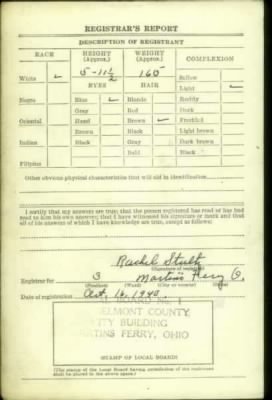 REGISTRAR'S REPORT
DESCRIPTION OF REGISTRANT
RACE HEIGHT (Approx.) WEIGHT (Approx.) COMPLEXION
White ✓ 5-11½ 165 Sallow
EYES HAIR Light ✓
Negro Blue ✓ Blonde Ruddy
Gray Red Dark
Oriental Hazel Brown ✓ Freckled
Brown Black Light brown
Indian Black Gray Dark brown
Bald Black
Filipino
Other obvious physical characteristics that will aid in identification
I certify that my answers are true; that the person registered has read or has had
read to him his own answers; that I have witnessed his signature or mark and that
all of his answers of which I have knowledge are true, except as follows:
Rachel
(Signature of registrar)
Registrar for 3 Martins Ferry O.
(Precinct) (Ward) (City or county) (State)
Date of registration Oct. 16, 1940
BOARD NO. 1
BELMONT COUNTY
CITY BUILDING
MARTINS FERRY, OHIO
STAMP OF LOCAL BOARD
(The stamp of the Local Board having jurisdiction of the registrant
shall be placed in the above space.)